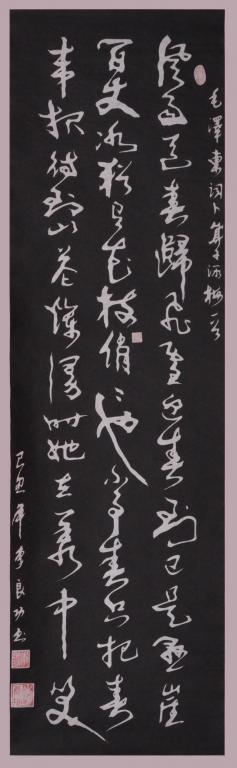 毛澤東詞卜算子詠梅一首
風雨送春歸飛雪迎春到已是懸崖
百丈冰猶有花枝俏俏也不爭春只把春
來報待到山花爛漫時她在叢中笑
李良功書